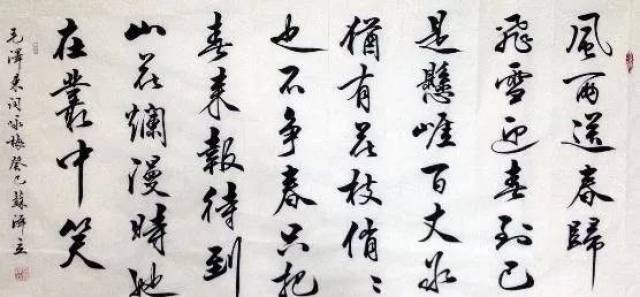 風雨送春歸
飛雪迎春到已
是懸崖百丈氷
猶有花枝俏々
也不争春只把
春来報待到
山花爛漫時她
在叢中笑
毛澤東词咏梅癸巳蘇澤立